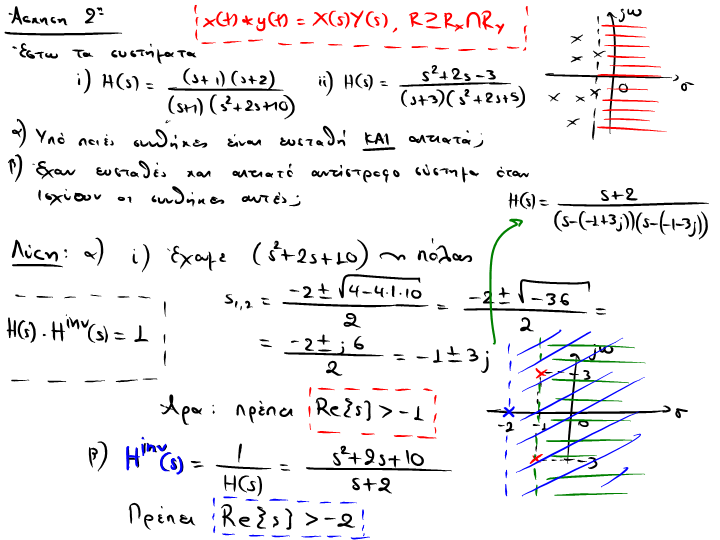 Άσκηση 2η
x(t) * y(t) = X(s)Y(s), R ≥ Rx ∩ Ry
jω
σ
0
Έστω τα συστήματα
i) H(s) = (s+1)(s+2) / (s+1)(s²+2s+10) ii) H(s) = s²+2s-3 / (s+3)(s²+2s+5)
α) Υπό ποιές συνθήκες είναι ευσταθή ΚΑΙ αιτιατά;
β) Έχουν ευσταθές και αιτιατό αντίστροφο σύστημα όταν
ισχύουν οι συνθήκες αυτές;
H(s) = s+2 / (s-(-1+3j))(s-(-1-3j))
Λύση: α) i) Έχουμε (s²+2s+10) ~ πόλοι
s1,2 = -2 ± √4-4·1·10 / 2 = -2 ± √-36 / 2 =
H(s) · H^inv(s) = 1
= -2 ± j6 / 2 = -1 ± 3j
jω
3
σ
-2 -1 0
-3
Άρα: πρέπει Re{s} > -1
β) H^inv(s) = 1 / H(s) = s²+2s+10 / s+2
Πρέπει Re{s} > -2